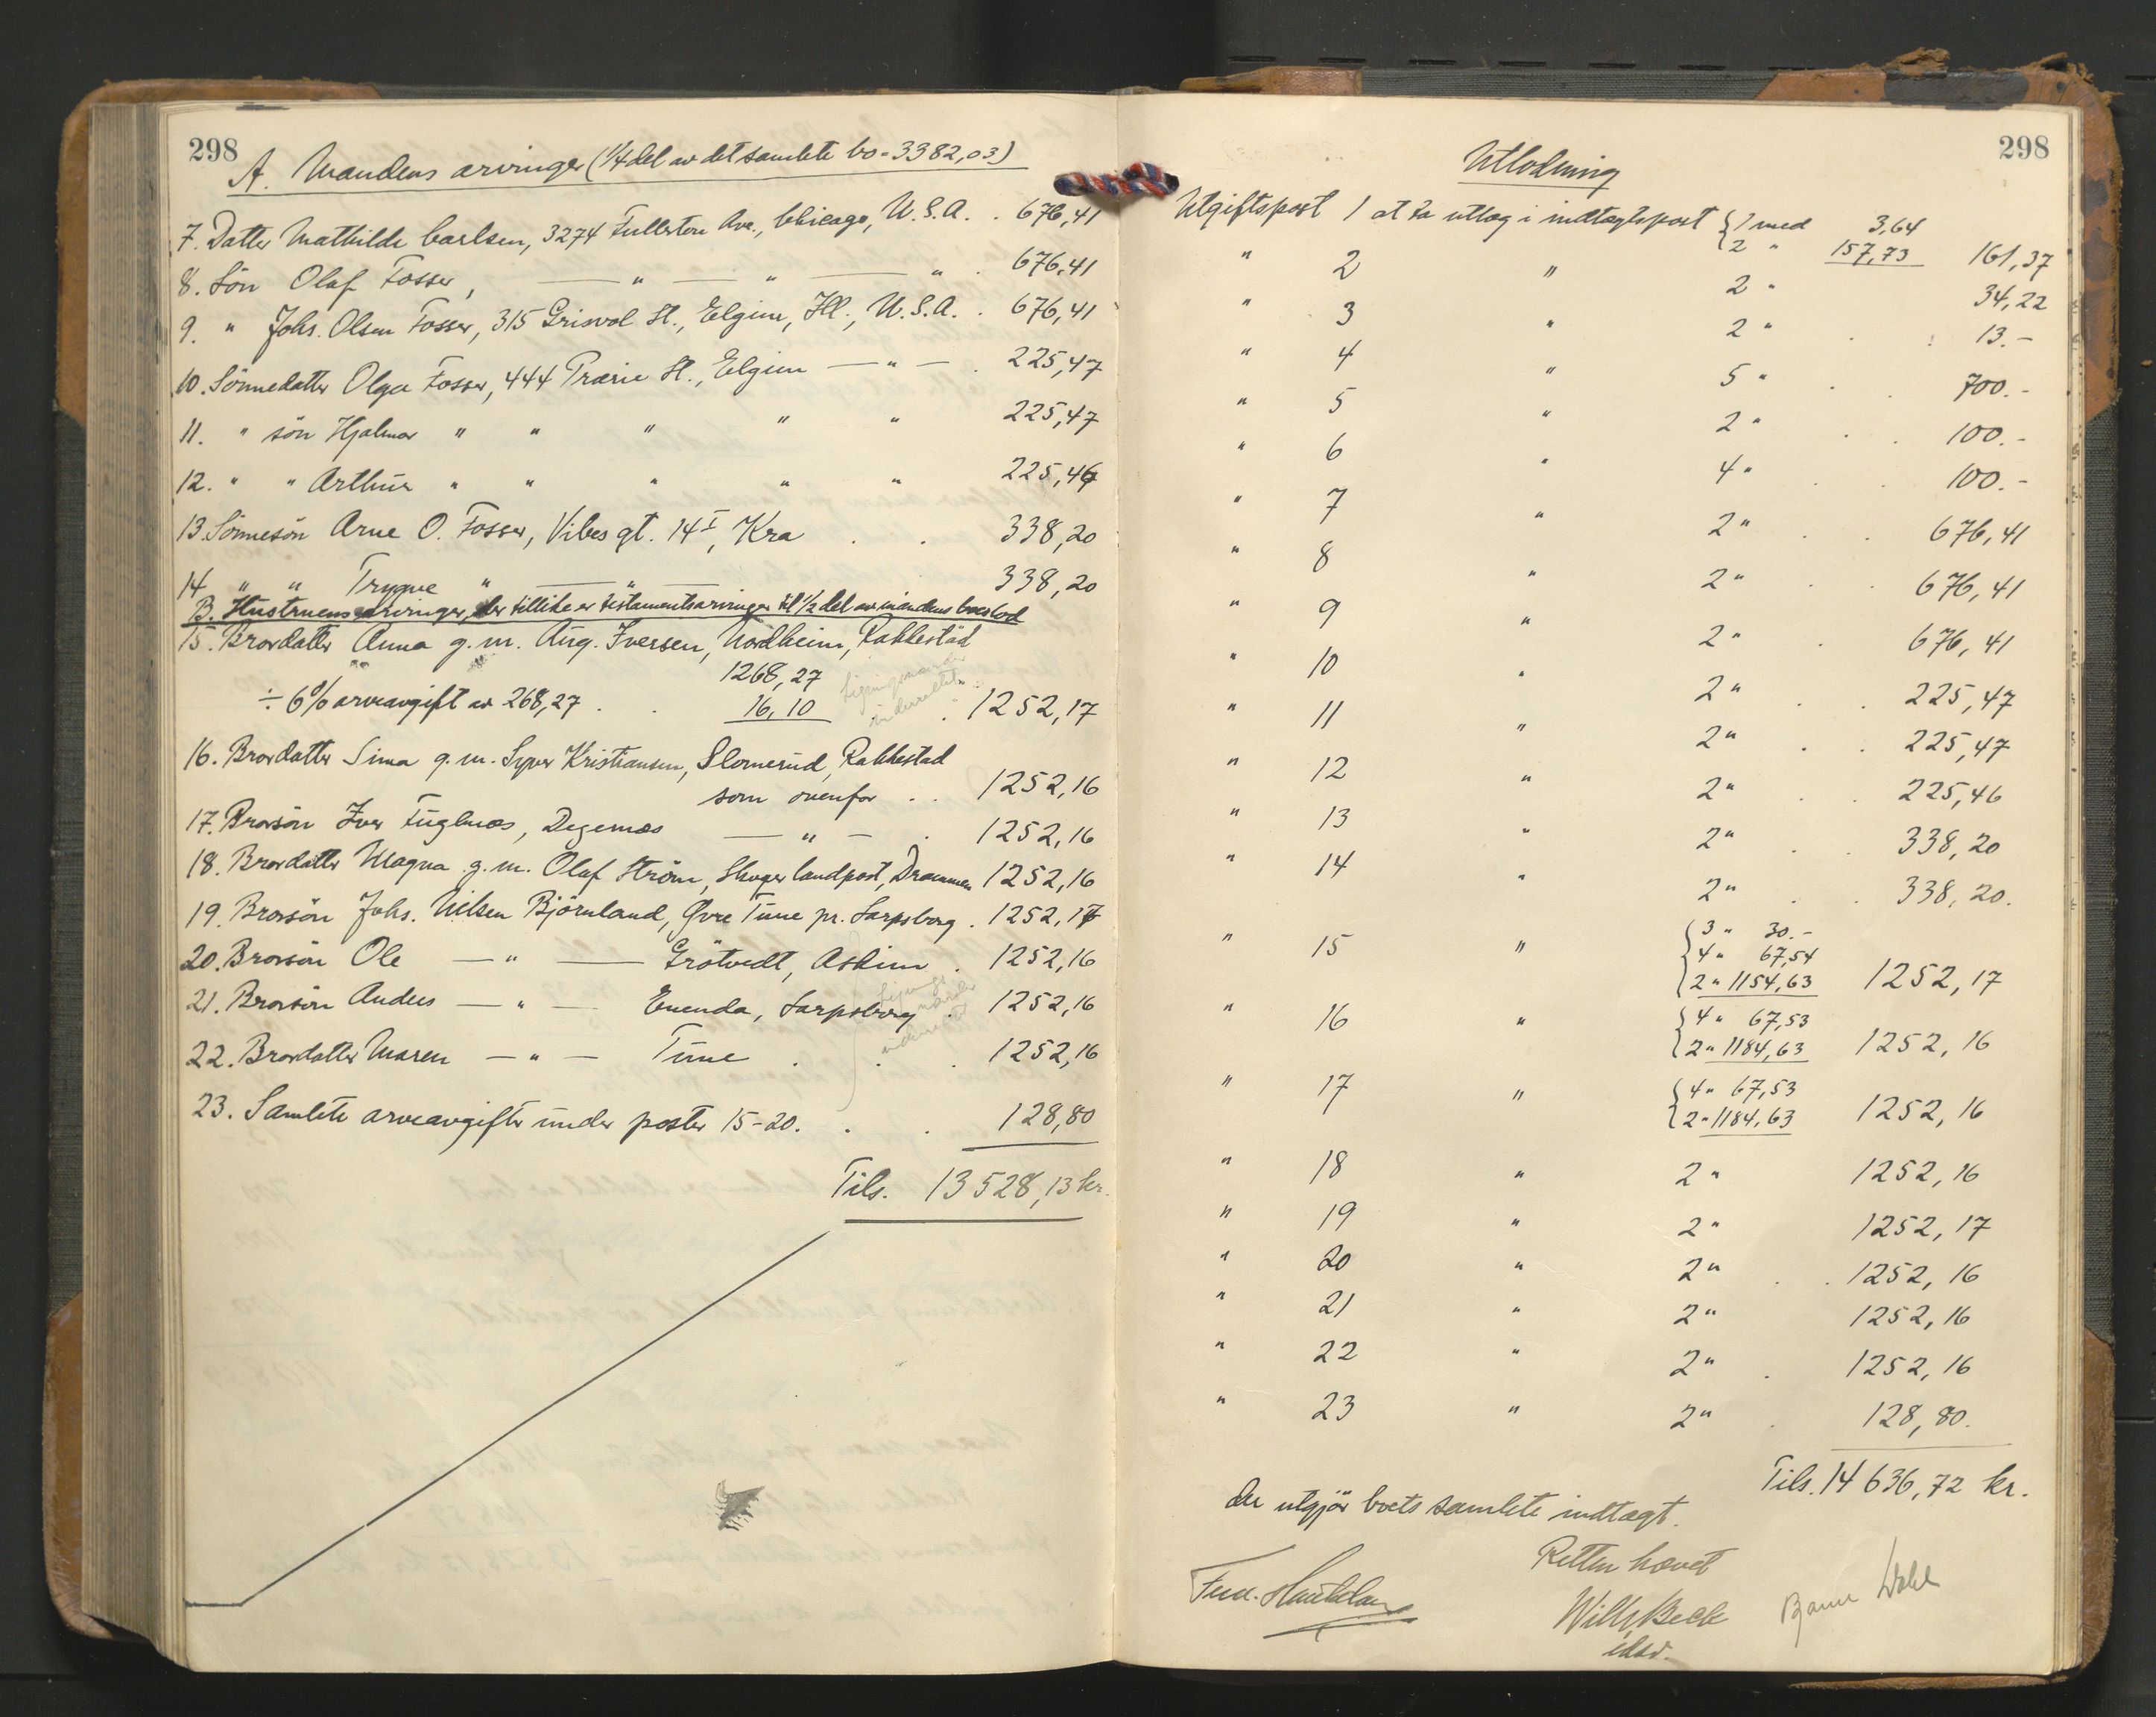 298
A. Mandens arvinger (1/4 del av det samlete bo = 3382,03)
7. Datter Mathilde Carlsen, 3274 Fullerton Ave., Chicago, U.S.A. . 676,41
8. Sön Olaf Fosser, — " — " — " . 676,41
9. " Johs. Olsen Fosser, 315 Grisvol St., Elgine, Ill., U.S.A. . 676,41
10. Sönnedatter Olga Fosser, 444 Prærie St., Elgien — " — . 225,47
11. " sön Hjalmar " " " " " 225,47
12. " " Arthur " " " " " 225,46
13. Sönnesön Arne O. Fosser, Vibes gt. 14 I, Kra . . 338,20
14 " " Trygve " — " — 338,20
B. Hustruens arvinger, der tillike er testamentsarvinger til 1/2 del av mandens boeslod
15. Brordatter Anna g. m. Aug. Iversen, Nordheim, Rakkestad
1268,27
÷ 6% arveavgift av 268,27 . . 16,10 . 1252,17
16. Brordatter Sina g. m. Syver Kristiansen, Slomerud, Rakkestad
som ovenfor . . 1252,16
17. Brorsön Iver Fuglenæs, Degernæs — " — . 1252,16
18. Brordatter Magna g. m. Olaf Ström, Skoger landpost, Drammen 1252,16
19. Brorsön Johs. Nilsen Björnland, Øvre Tune pr. Sarpsborg . 1252,17
20. Brorsön Ole — " — Grötvedt, Askim . 1252,16
21. Brorsön Anders — " — Enenda, Sarpsborg . 1252,16
22. Brordatter Maren — " — Tune . . . 1252,16
23. Samlete arveavgifter under poster 15-20. . . 128,80
Tils. 13 528,13 kr.
298
Utlodning
Utgiftspost 1 at ta utlæg i indtægtspost { 1 med 3,64
2 " 157,73 161,37
" 2 " 2 " 34,22
" 3 " 2 " . . 13.-
" 4 " 5 " . . 700.-
" 5 " 2 " . . 100.-
" 6 " 4 " . . 100.-
" 7 " 2 " . . 676,41
" 8 " 2 " . . 676,41
" 9 " 2 " . 676,41
" 10 " 2 " . . 225,47
" 11 " 2 " . . 225,47
" 12 " 2 " . . 225,46
" 13 " 2 " . . 338,20
" 14 " 2 " . . 338,20.
" 15 " { 3 " 30.-
4 " 67,54
2 " 1154,63 1252,17
" 16 " { 4 " 67,53
2 " 1184,63 1252,16
" 17 " { 4 " 67,53
2 " 1184,63 1252,16
" 18 " 2 " 1252,16
" 19 " 2 " 1252,17
" 20 " 2 " . . 1252,16
" 21 " 2 " 1252,16
" 22 " 2 " . 1252,16
" 23 " 2 " . 128,80.
Tils. 14 636,72 kr.
der utgjör boets samlete indtægt.
Retten hævet
Wilh Beck